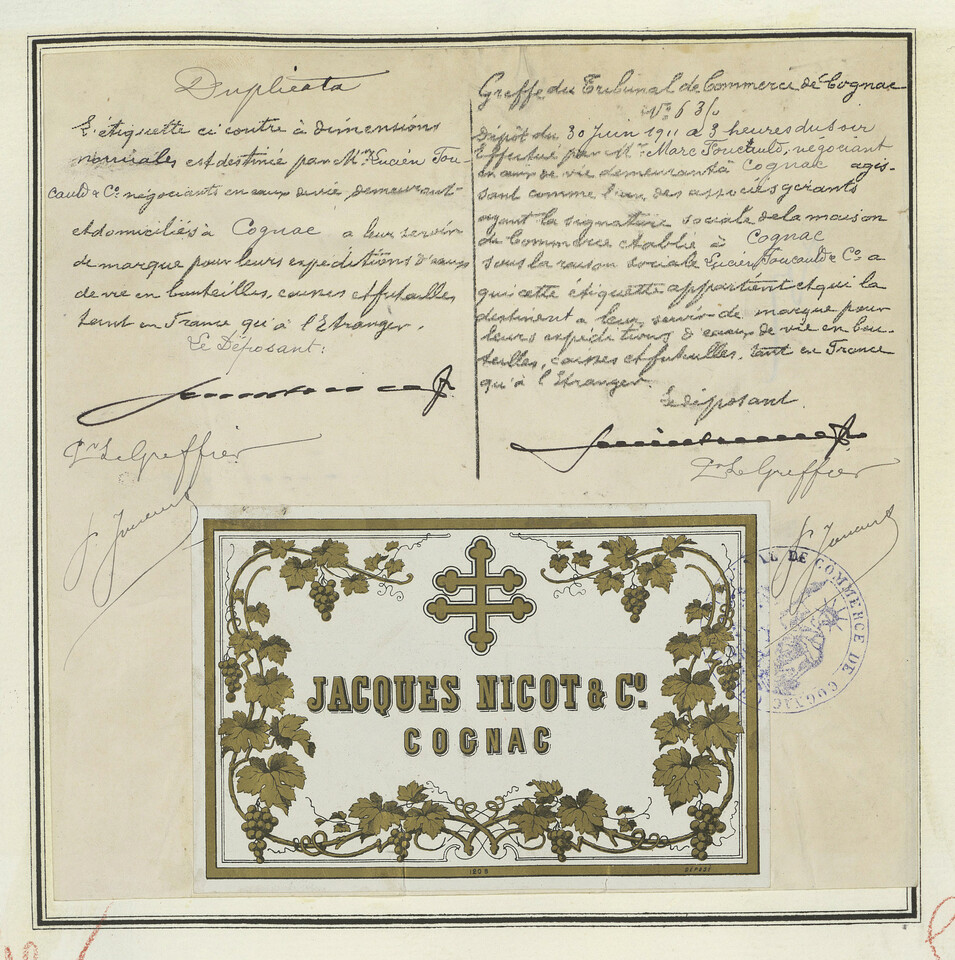 Duplicata
L'étiquette ci contre à dimensions
normales est destinée par Mr. Lucien Fou-
cauld & Co. négociants en eaux de vie, demeurant
et domiciliés à Cognac a leur servir
de marque pour leurs expéditions d'eaux
de vie en bouteilles, caisses et futailles
tant en France qu'à l'Etranger.
Le Déposant:
Pr Le Greffier
Greffe du Tribunal de Commerce de Cognac
No 635
Dépôt du 30 Juin 1911 à 3 heures du soir
Effectué par Mr. Marc Foucauld, négociant
en eaux de vie demeurant à Cognac agis-
sant comme l'un des associés gérants
ayant la signature sociale de la maison
de Commerce établie à Cognac
sous la raison sociale Lucien Foucauld & Co. a
qui cette étiquette appartient et qui la
destinent a leur servir de marque pour
leurs expéditions d'eaux de vie en bou-
teilles, caisses et futailles. tant en France
qu'à l'Etranger.
Le déposant
Pr Le Greffier
JACQUES NICOT & Co.
COGNAC
1208
DÉPOSÉ
TRIBUNAL DE COMMERCE DE COGNAC